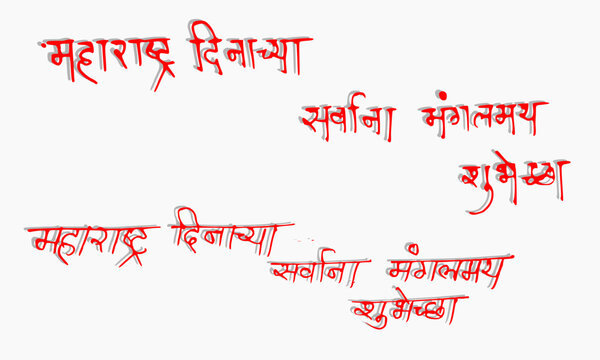 महाराष्ट्र दिनाच्या
सर्वाना मंगलमय
शुभेच्छा
महाराष्ट्र दिनाच्या
सर्वाना मंगलमय
शुभेच्छा